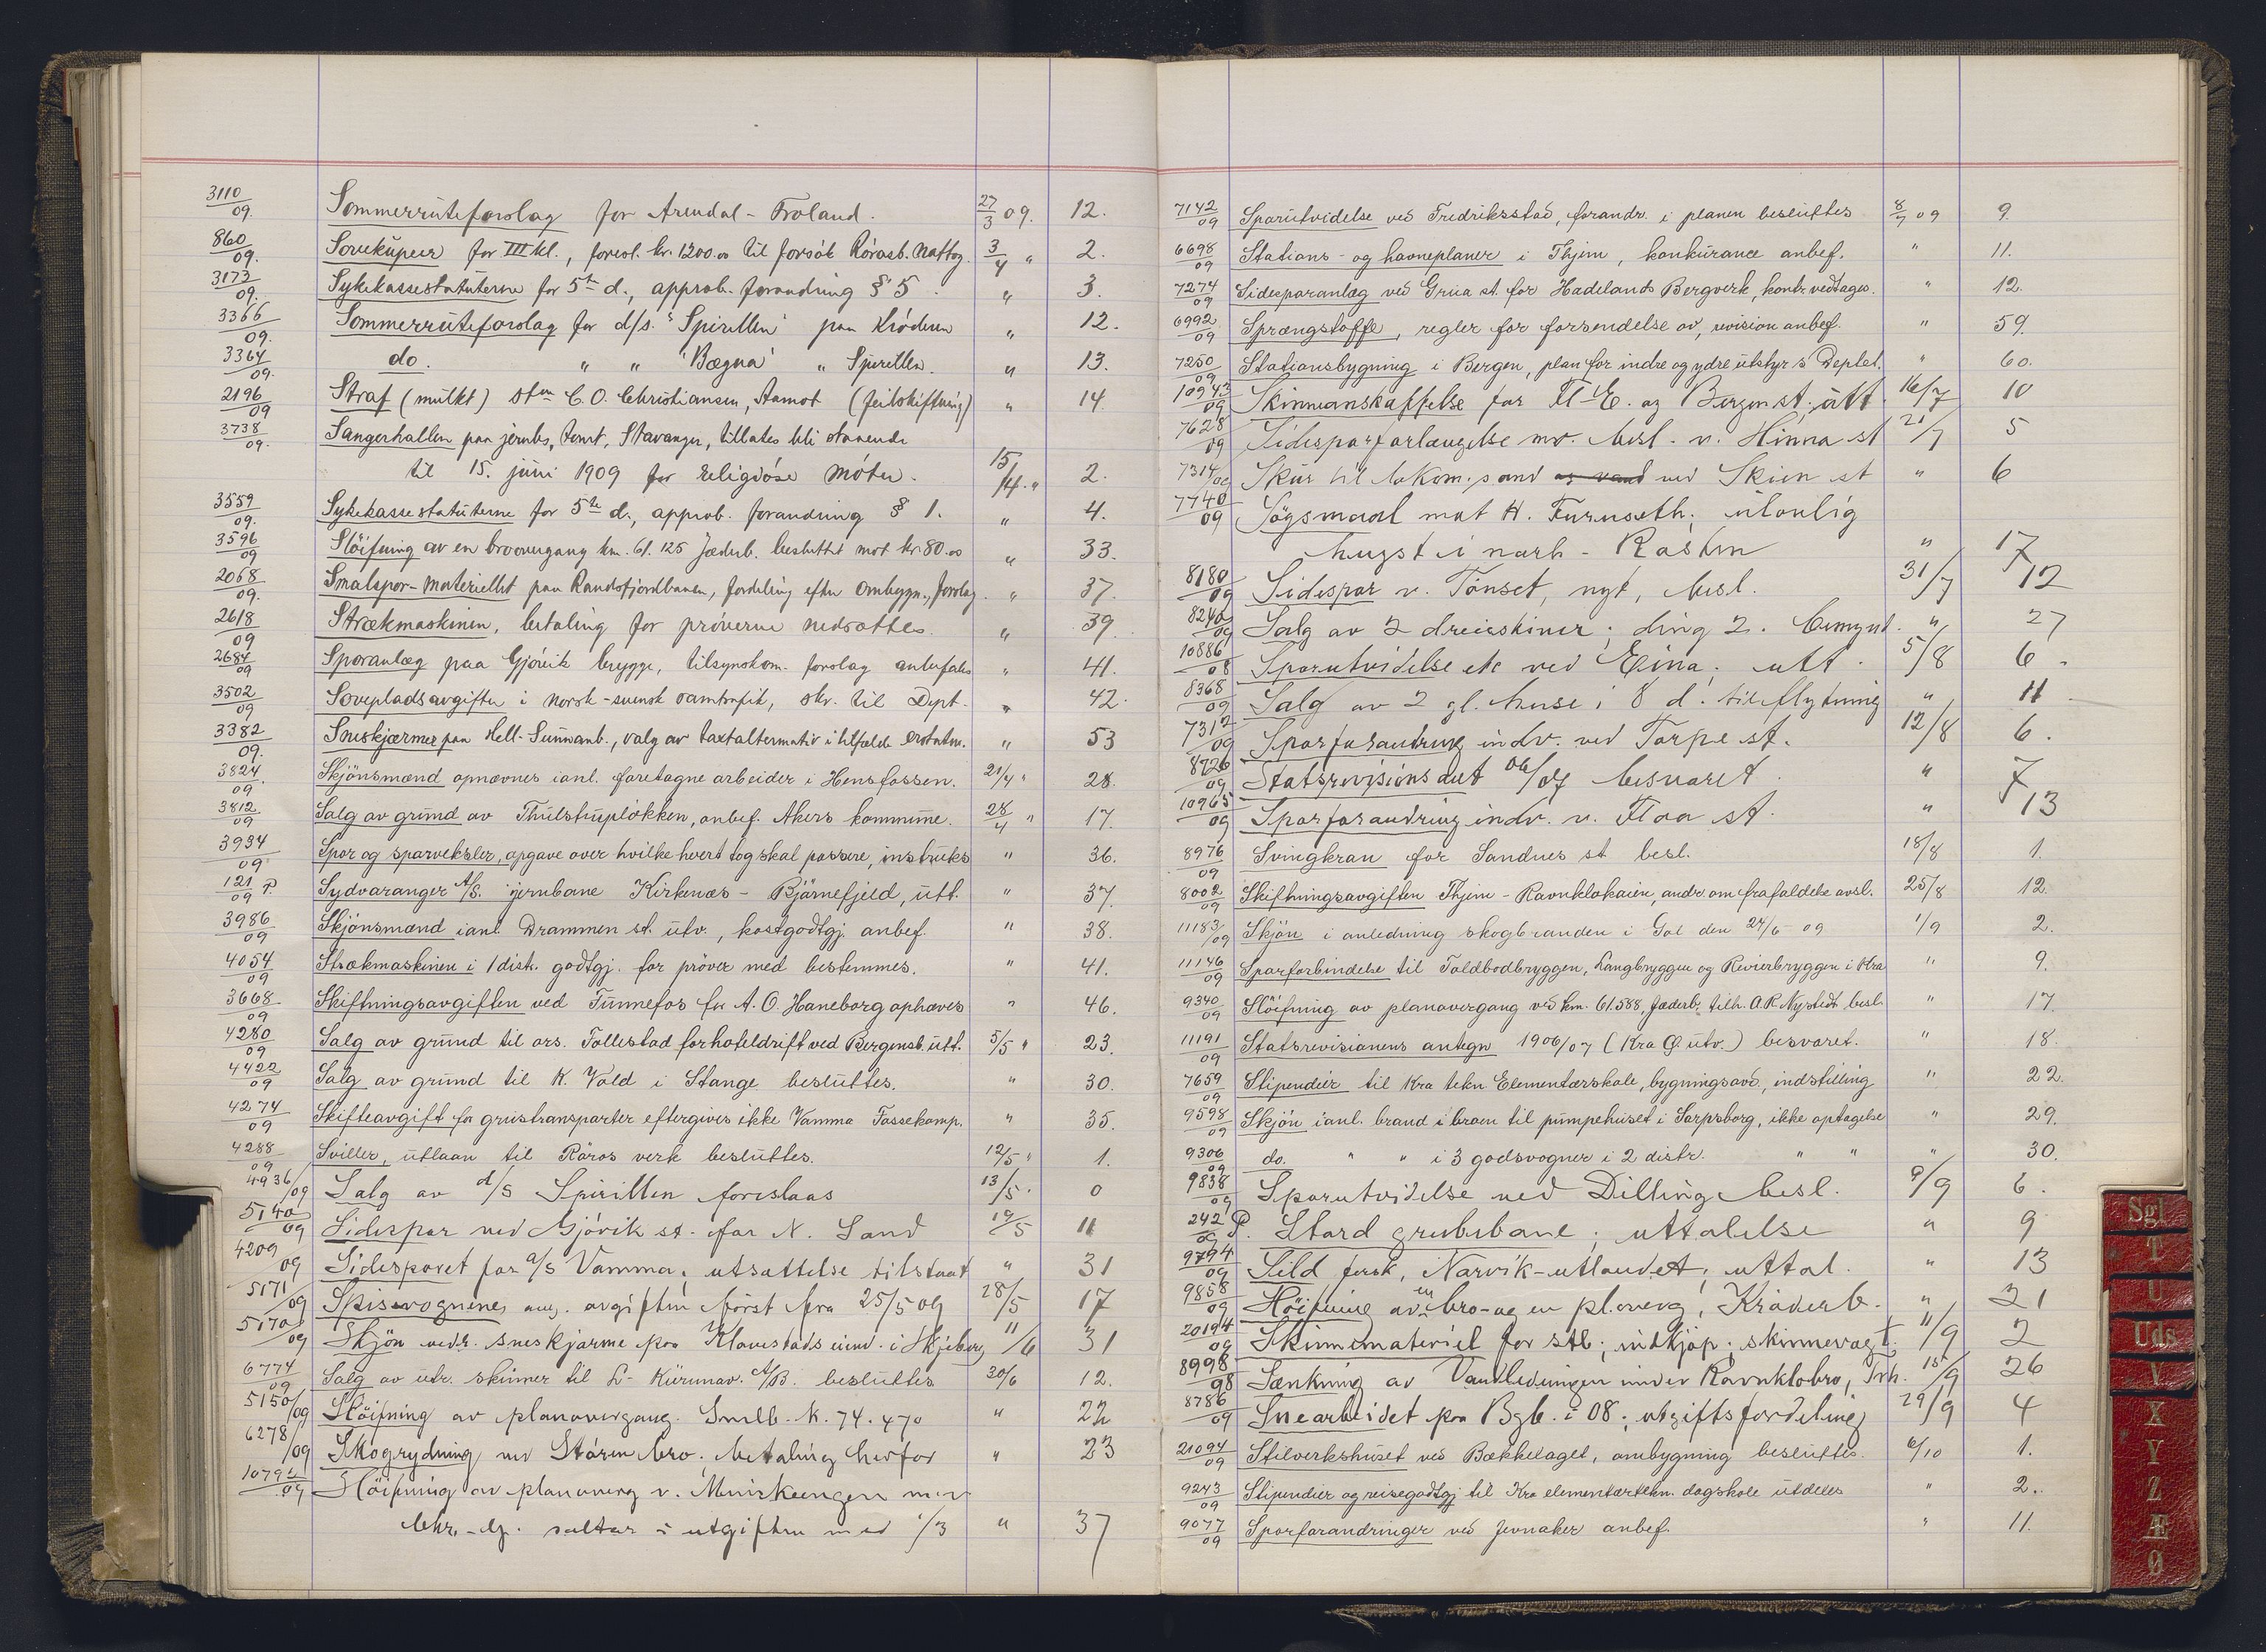 3110/09. Sommerruteforslag for Arendal - Froland. 27/3 09. 12.
860/09. Sovekupeer for III kl., foresl. kr. 1200.00 til forsök Rörosb. Nattog. 3/4 " 2.
3173/09. Sykekassestatuterne for 5te d., approb. forandring § 5. " 3.
3366/09. Sommerruteforslag for d/s. "Spirillen" paa Kröderen " 12.
3364/09. do. " " "Bægna" " Spirillen. " 13.
2196/09 Straf (mulkt) stm C. O. Christiansen, Aamot (feilskiftning) " 14.
3738/09. Sangerhallen paa jernbs. tomt, Stavanger, tillates bli staaende
til 15. juni 1909 for religiöse möter. 15/4. " 2.
3559/09. Sykekassestatuterne for 5te d., approb. forandring § 1. " 4.
3596/09 Slöifning av en broovergang km. 61.125 Jæderb. besluttet mot kr. 80.00 " 33.
2068/09. Smalspor-materiellet paa Randsfjordbanen, fordeling efter ombygn., forslag. " 37.
2618/09 Strækmaskinen, betaling for pröverne nedsattes. " 39.
2684/09 Sporanlæg paa Gjövik brygge, tilsynskom. forslag anbefales " 41.
3502/09 Sovepladsavgifter i norsk-svensk samtrafik, skr. til Dept. " 42.
3382/09. Sneskjærmer paa Hell-Sunnanb., valg av taxtalternativ i tilfælde erstatn. " 53
3824/09. Skjönsmænd opnævnes i anl. foretagne arbeider i Hensfossen. 21/4 " 28.
3812/09 Salg av grund av Thulstrupløkken, anbef. Akers kommune. 28/4 " 17.
3934/09 Spor og sporveksler, opgave over hvilke hvert tog skal passere, instruks " 36.
121/09 P. Sydvaranger A/S. jernbane Kirkenæs - Björnefjeld, utt. " 37.
3986/09 Skjönsmænd i anl. Drammen st. utv., kostgodtgj. anbef. " 38.
4054/09 Strækmaskinen i 1 distr. godtgj. for pröver med bestemmes. " 41.
3668/09 Skiftningsavgiften ved Tunnefos for A. O. Haneborg ophæves " 46.
4280/09 Salg av grund til ors. Tollestad for hoteldrift ved Bergensb. utt. 5/5 " 23.
4422/09 Salg av grund til K. Vold i Stange besluttes. " 30.
4274/09 Skifteavgift for grustransporter eftergives ikke Vamma Fossekomp. " 35.
4288/09 Sviller, utlaan til Röros verk besluttes. 12/5 " 1.
4936/09 Salg av d/s Spirillen foreslaas 13/5. 0
5140/09 Sidespor ved Gjövik st. for N. Sand 19/5 11
4209/09 Sidesporet for a/s Vamma; utsættelse tilstaat " 31
5171/09 Spisevognene, ang. avgiften först fra 25/5 09 28/5 17
5170/09 Skjön vedr. sneskjærme paa Klavestads eiend. i Skjeberg 11/6 31
6774/09 Salg av utr. skinner til L- Kürunav. A/B. besluttes. 30/6 12.
5150/09 Slöifning av planovergang. Smlb. k. 74.470 " 22
6278/09 Skogrydning ved Stören bro. betaling herfor " 23
10794/09 Slöifning av planoverg v. m.v
deltar i utgiften med 1/3 " 37
7142/09 Sporutvidelse ved Fredriksstad, forandr. i planen besluttes 8/7 09 9.
6698/09 Stations- og havneplaner i Thjem, konkurance anbef. " 11.
7274/09 Sidesporanlæg ved Grua st. for Hadelands Bergverk, kontr. vedtages. " 12.
6992/09 Sprængstoffe, regler for forsendelse av, revision anbef. " 59.
7250/09 Stationsbygning i Bergen, plan for indre og ydre utstyr s. Deptet. " 60.
10943/09 Skinneanskaffelse for Fl-E. og Bergen st. att. 16/7 10
7628/09 Sidesporforlængelse mv. besl. v. Hinna st 21/7 5
7314/09 Skur til lokom.sand og vand ved Skien st " 6
7740/09 Sögsmaal mot H. Furuseth; ulovlig
hugst i nærh - Rasten " 17
8180/09 Sidespor v. Tönset, nyt, besl. 31/7 12
8240/09 Salg av 2 dreieskiver; ding 2. bemynd. " 27
10886/08 Sporutvidelse etc ved Eina; utt. 5/8 6.
8368/09 Salg av 2 gl. huse i 8 d. til flytning " 11
7312/09 Sporforandring indv. ved Torpe st. 12/8 6.
8726/09 Statsrevisions ant 06/07 besvaret " 7
10965/09 Sporforandring indv. v. Flaa st. " 13
8976/09 Svingkran for Sandnes st besl. 18/8 1.
8002/09 Skiftningsavgiften Thjem - Ravnklokaien, andr. om frafaldelse avsl. 25/8 12.
11183/09 Skjön i anledning skogbranden i Gol den 24/6 09 1/9 2.
11146/09 Sporforbindelse til Toldbodbryggen, Langbryggen og Revierbryggen i Kra " 9.
9340/09 Slöifning av planovergang ved km. 61.588, Jæderb. tilh. A. R. Nystedt besl. " 17.
11191/09 Statsrevisionens antegn 1906/07 (Kra Ø utv.) besvaret. " 18.
7659/09 Stipendier til Kra tekn Elementærskole, bygningsavd., indstilling " 22.
9598/09 Skjön i anl. brand i broen til pumpehuset i Sarpsborg, ikke optagelse " 29.
9306/09 do. " " i 3 godsvogner i 2 distr. " " " 30.
9838/09 Sporutvidelse ved Dilling besl. 9/9 6.
242/09 P. Stord grubebane; uttalelse " 9
9794/09 Sild fersk, Narvik-utlandet; uttal. " 13
9858/09 Slöifning av en bro- og en pl.overg, Kröderb. " 31
20194/09 Skinnemateriel for stb; indkjøp; skinnevagt. 11/9 2
8998/98 Sænkning av Vandledningen under Ravnklobro, Trh. 15/9 26
8786/09 Snearbeidet paa Bgb. i 08; utgiftsfordeling 29/9 4
21094/09 Stilverkshuset ved Bækkelaget, ombygning besluttes. 6/10 1.
9243/09 Stipendier og reisegodtgj til Kra elementærtekn. dagskole utdeles " 2.
9077/09 Sporforandringer ved Jevnaker anbef. " 11.
Sgl
T
U
Uds
V
X
Y
Z
Æ
Ø